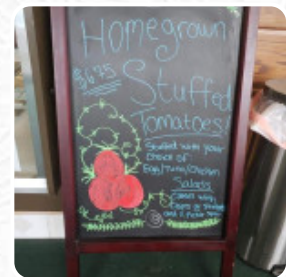 Homegrown
$6.75
Stuffed
Tomatoes!
Stuffed with your
choice of:
Egg/Tuna/Chicken
Salads